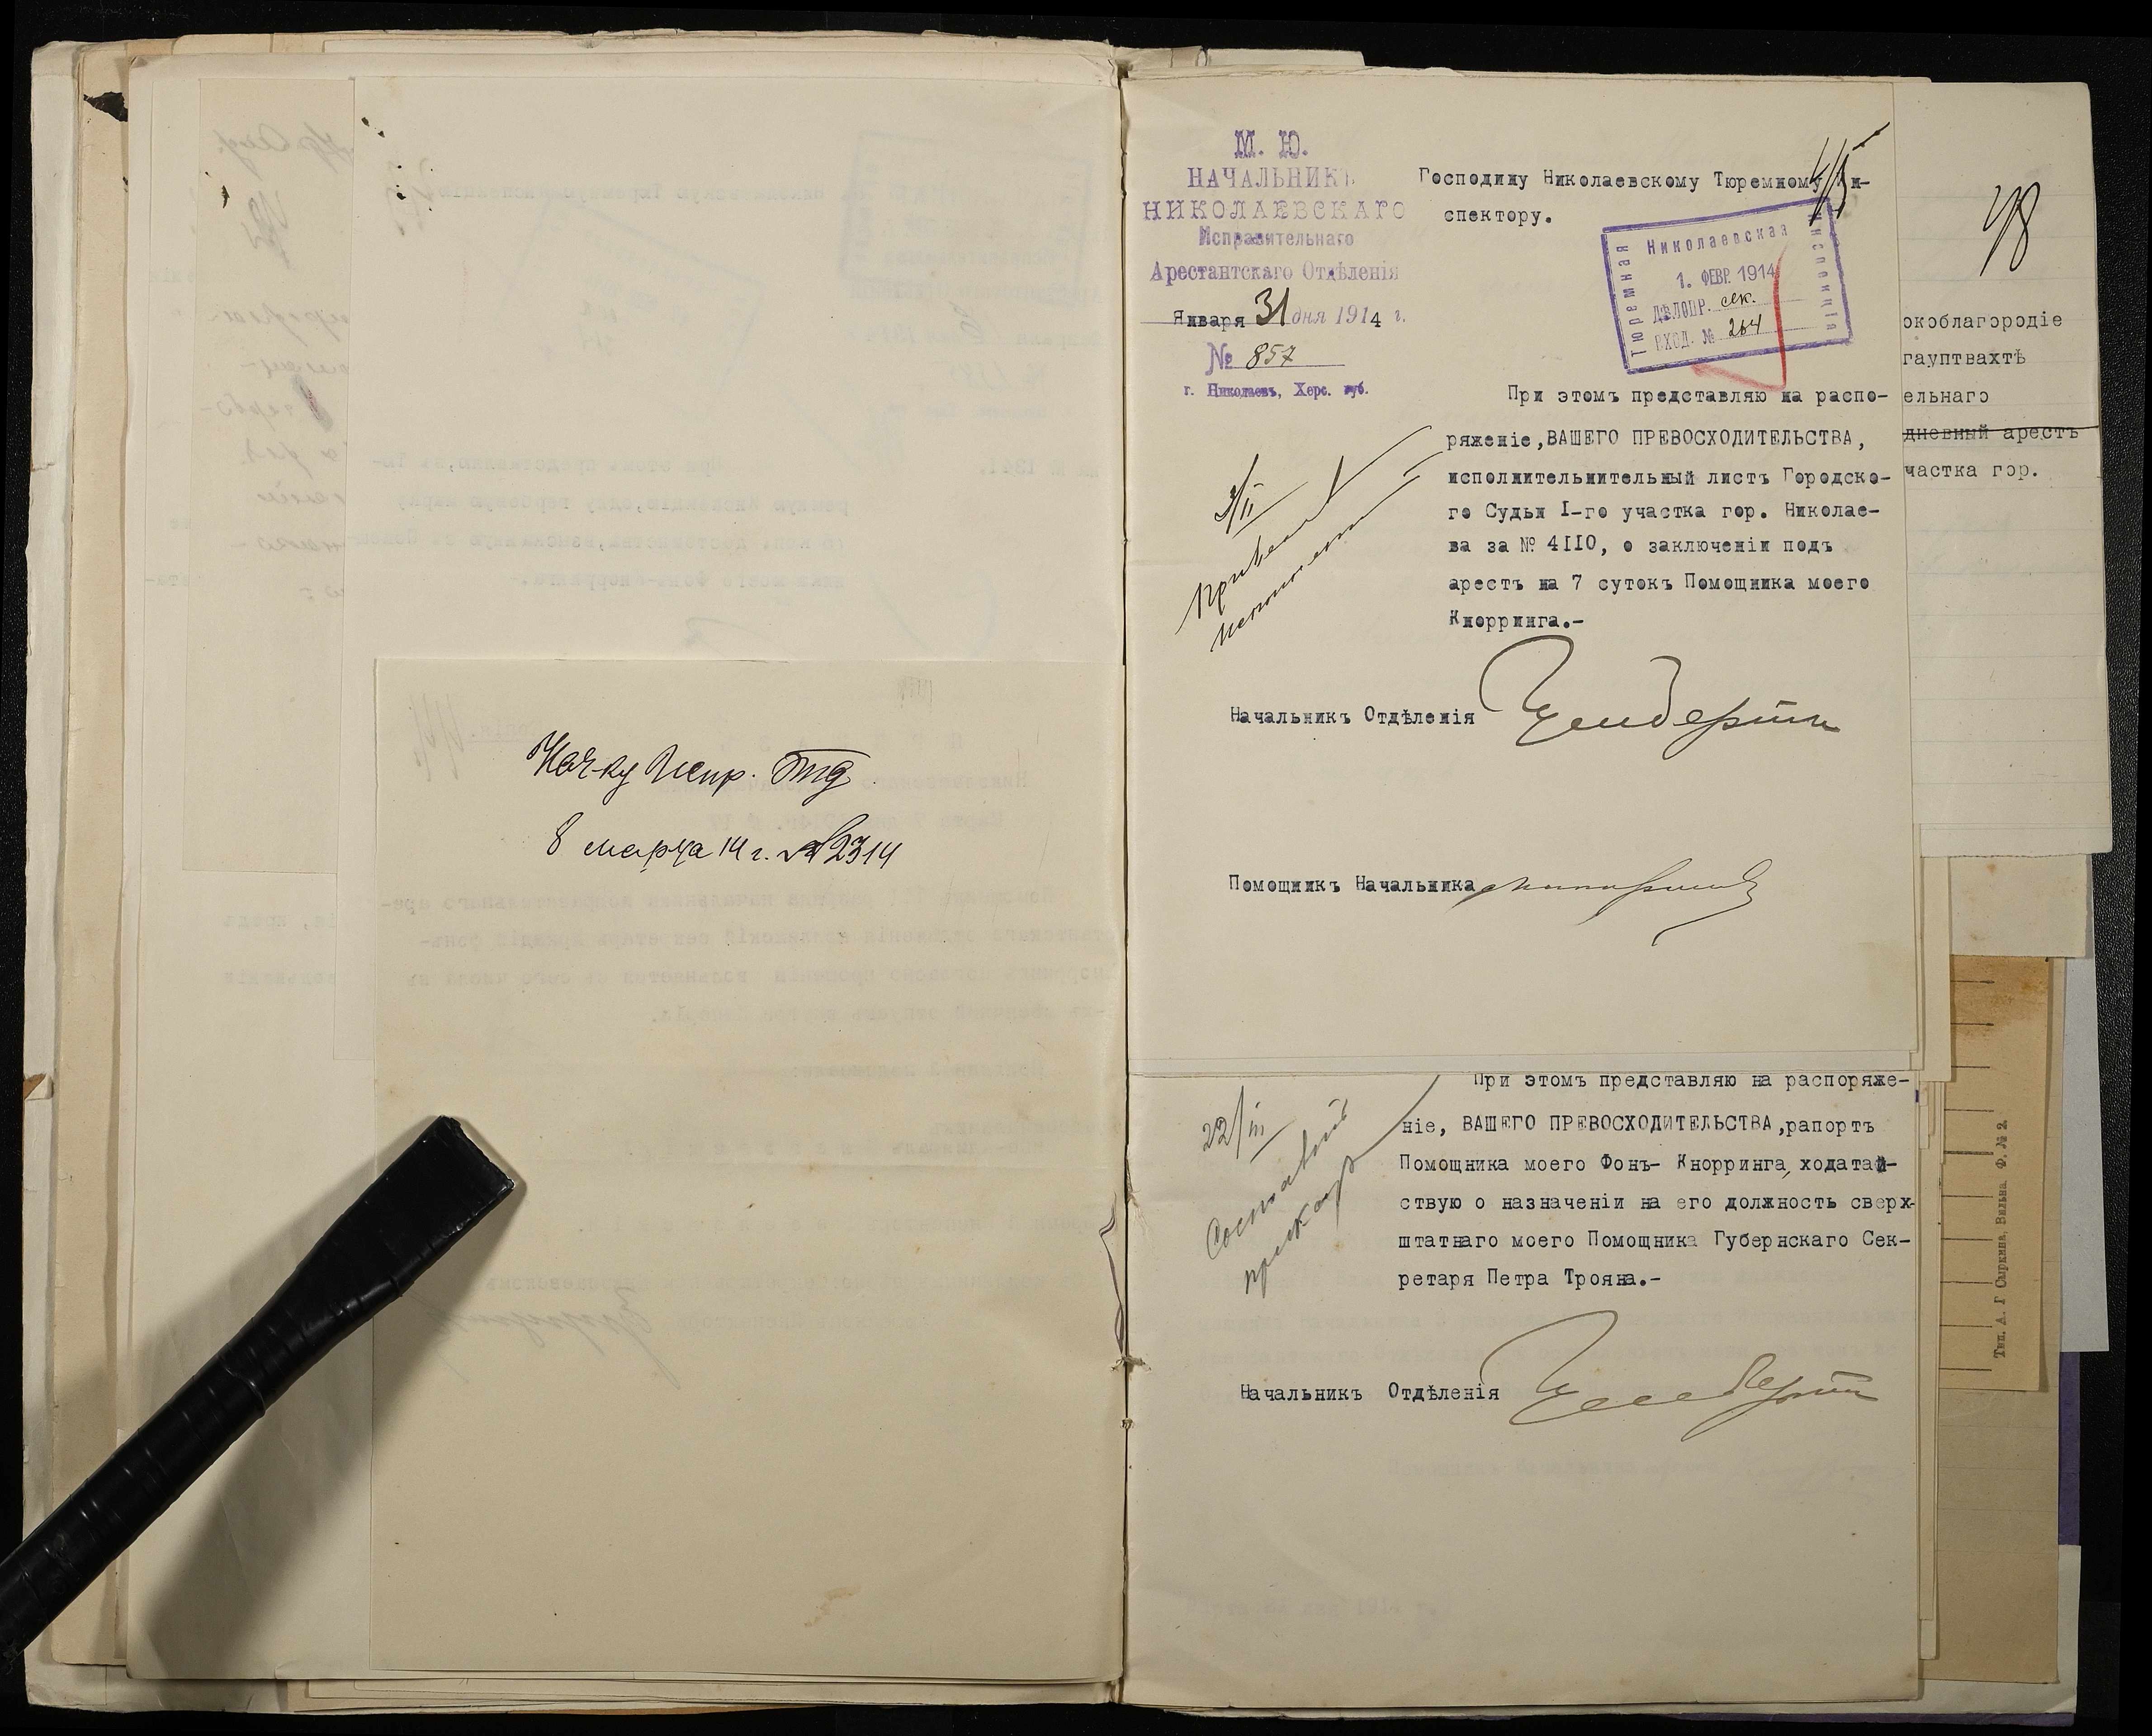 Нач-ку Испр. Отд.
8 марта 14 г. №2314
М. Ю.
НАЧАЛЬНИКЪ
НИКОЛАЕВСКАГО
Исправительнаго
Арестантскаго Отдѣленія
Января 31 дня 1914 г.
№ 857
г. Николаевъ, Херс. губ.
Господину Николаевскому Тюремному Ин-
спектору.
Николаевская
Тюремная
Инспекція
1. ФЕВР. 1914
ДѢЛОПР. сек.
ВХОД. № 264
48
При этомъ представляю на распо-
ряженіе, ВАШЕГО ПРЕВОСХОДИТЕЛЬСТВА,
исполнительнительный листъ Городско-
го Судьи I-го участка гор. Николае-
ва за № 4IIO, о заключеніи подъ
арестъ на 7 сутокъ Помощника моего
Кнорринга.-
3/II
Начальникъ Отдѣленія
Помощникъ Начальника
окоблагородіе
гауптвахтѣ
ельнаго
дневный арестъ
частка гор.
При этомъ представляю на распоряже-
ніе, ВАШЕГО ПРЕВОСХОДИТЕЛЬСТВА,рапортъ
Помощника моего Фонъ- Кнорринга, ходатай-
ствую о назначеніи на его должность сверх-
штатнаго моего Помощника Губернскаго Сек-
ретаря Петра Трояна.-
22/III
Составить
приказ
Начальникъ Отдѣленія
Тип. А. Г Сыркина. Вильна. Ф. № 2.